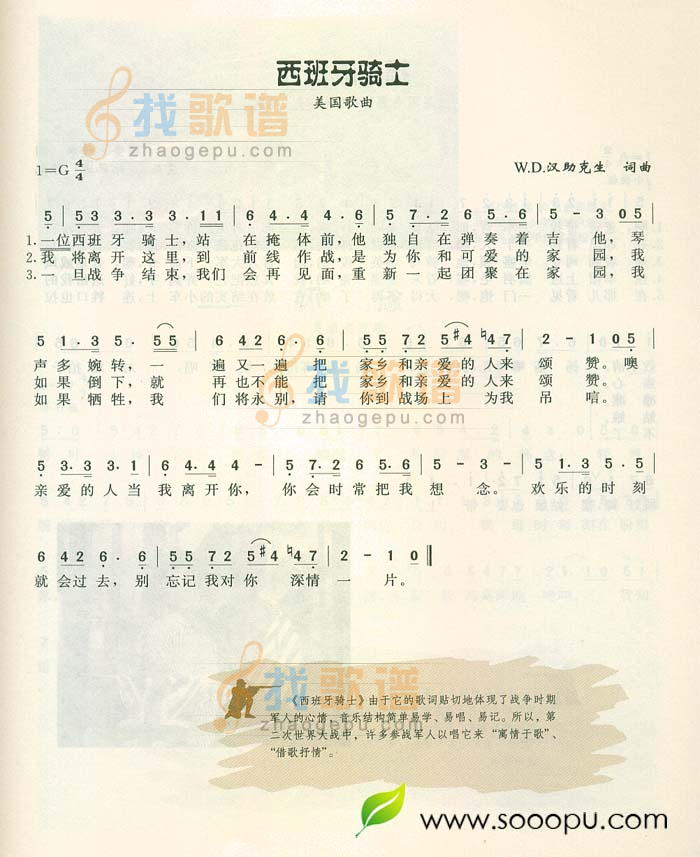 西班牙骑士
美国歌曲
找歌谱
zhaogepu.com
1=G 4/4
W.D.汉助克生 词曲
5 | 53 3·3 3·11 | 6 4·4 4·6 | 5 7·2 6 5·6 | 5 - 3 05 |
1.一位西班牙 骑士，站 在 掩 体 前，他 独 自 在 弹 奏 着 吉 他，琴
2.我 将 离 开 这 里，到 前 线 作 战，是 为 你 和 可 爱 的 家 园，我
3.一 旦 战 争 结 束，我 们 会 再 见 面，重 新 一 起 团 聚 在 家 园，我
5 1·3 5· 55 | 6 42 6· 6 | 55 72 5#4 ♮47 | 2 - 1 05 |
声 多 婉 转，一 遍 又 一 遍 把 家乡 和亲 爱的 人来 颂 赞。噢
如 果 倒 下，就 再 也 不 能 把 家乡 和亲 爱的 人来 颂 赞。
如 果 牺 牲，我 们 将 永 别，请 你 到 战 场 上 为我 吊 唁。
找歌谱
zhaogepu.com
5 3·3 3·1 | 6 4·4 4 - | 5 7·2 6 5·6 | 5 - 3 - | 5 1·3 5·5 |
亲 爱 的 人 当 我 离 开 你， 你 会 时 常 把 我 想 念。 欢 乐 的 时 刻
6 42 6·6 | 55 72 5#4 ♮47 | 2 - 1 0 ‖
就 会过 去，别 忘记 我对 你 深情 一 片。
找歌谱
zhaogepu.com
《西班牙骑士》由于它的歌词贴切地体现了战争时期
军人的心情，音乐结构简单易学、易唱、易记。所以，第
二次世界大战中，许多参战军人以唱它来“寓情于歌”、
“借歌抒情”。
www.sooopu.com